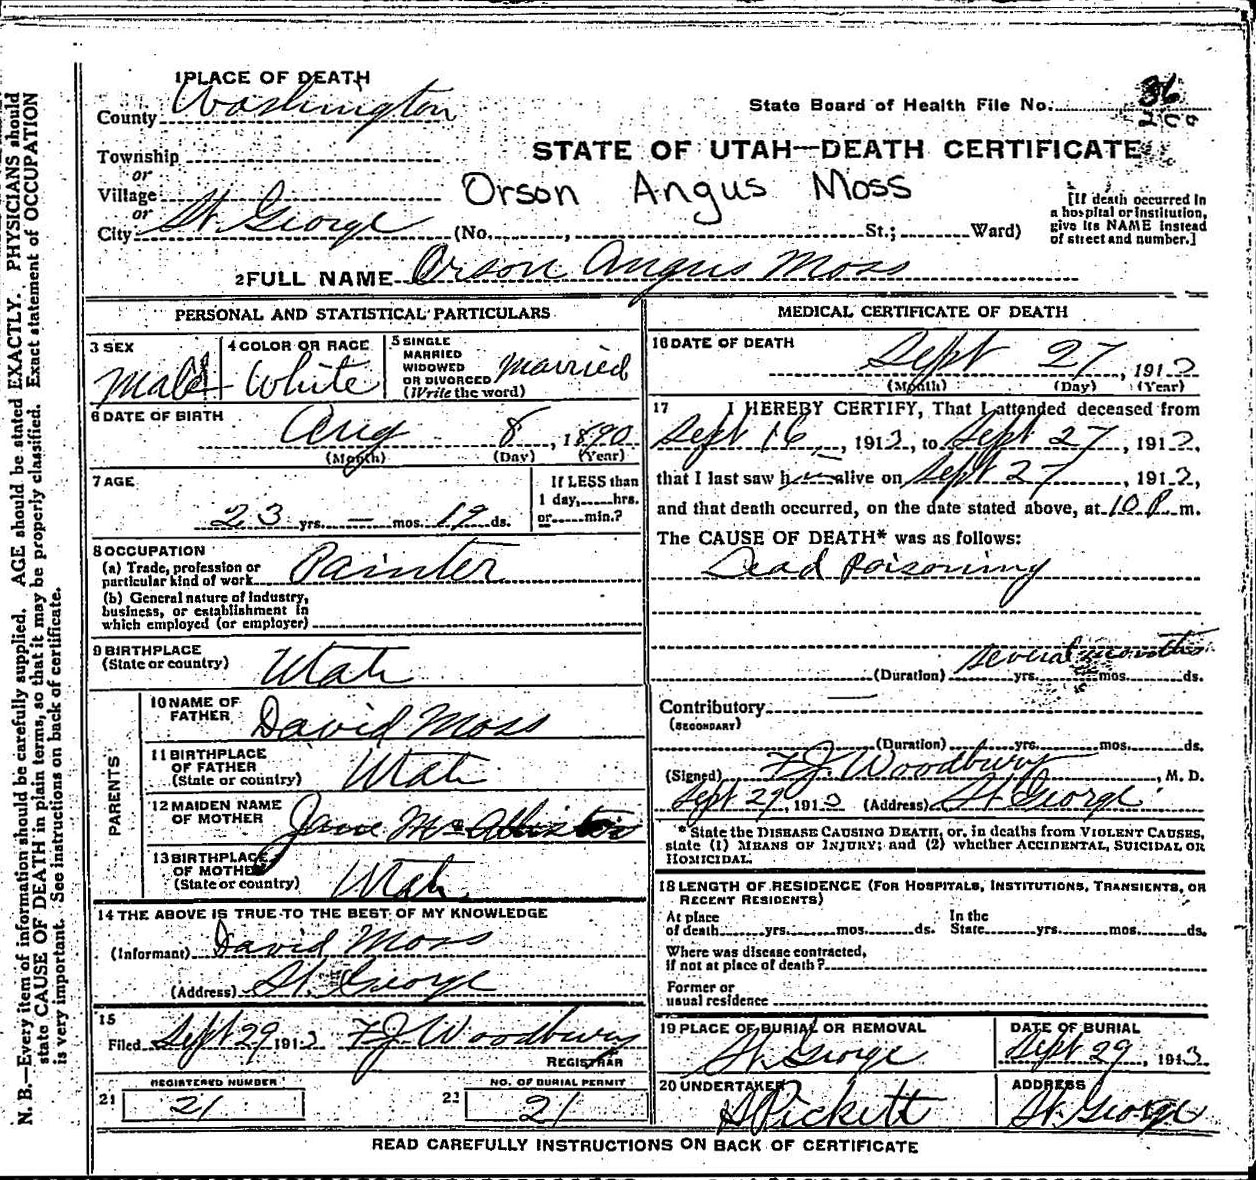 N. B.—Every item of information should be carefully supplied. AGE should be stated EXACTLY. PHYSICIANS should
state CAUSE OF DEATH in plain terms, so that it may be properly classified. Exact statement of OCCUPATION
is very important. See instructions on back of certificate.
1 PLACE OF DEATH
County Washington
State Board of Health File No. 36
Township
or
Village
or
City St. George
STATE OF UTAH—DEATH CERTIFICATE
Orson Angus Moss
(No. , St.; Ward)
[If death occurred in
a hospital or institution,
give its NAME instead
of street and number.]
2 FULL NAME Orson Angus Moss
PERSONAL AND STATISTICAL PARTICULARS
3 SEX
Male
4 COLOR OR RACE
White
5 SINGLE
MARRIED
WIDOWED
OR DIVORCED
(Write the word)
Married
6 DATE OF BIRTH
Aug 8, 1890
(Month) (Day) (Year)
7 AGE
23 yrs. — mos. 19 ds.
If LESS than
1 day, hrs.
or min.?
8 OCCUPATION
(a) Trade, profession or
particular kind of work Painter
(b) General nature of industry,
business, or establishment in
which employed (or employer)
9 BIRTHPLACE
(State or country) Utah
PARENTS
10 NAME OF
FATHER David Moss
11 BIRTHPLACE
OF FATHER
(State or country) Utah
12 MAIDEN NAME
OF MOTHER Jane McAllister
13 BIRTHPLACE
OF MOTHER
(State or country) Utah
14 THE ABOVE IS TRUE TO THE BEST OF MY KNOWLEDGE
(Informant) David Moss
(Address) St. George
15
Filed Sept 29 1913 F J Woodbury
REGISTRAR
REGISTERED NUMBER
21 21
NO. OF BURIAL PERMIT
22 21
MEDICAL CERTIFICATE OF DEATH
16 DATE OF DEATH
Sept 27, 1913
(Month) (Day) (Year)
17 I HEREBY CERTIFY, That I attended deceased from
Sept 16, 1913, to Sept 27, 1913,
that I last saw him alive on Sept 27, 1913,
and that death occurred, on the date stated above, at 10 P m.
The CAUSE OF DEATH* was as follows:
Lead Poisoning
several months
(Duration) yrs. mos. ds.
Contributory —
(SECONDARY)
(Duration) yrs. mos. ds.
(Signed) F J. Woodbury, M. D.
Sept 29, 1913 (Address) St. George
*State the DISEASE CAUSING DEATH, or, in deaths from VIOLENT CAUSES,
state (1) MEANS OF INJURY; and (2) whether ACCIDENTAL, SUICIDAL OR
HOMICIDAL.
18 LENGTH OF RESIDENCE (FOR HOSPITALS, INSTITUTIONS, TRANSIENTS, OR
RECENT RESIDENTS)
At place
of death yrs. mos. ds.
In the
State yrs. mos. ds.
Where was disease contracted,
if not at place of death?
Former or
usual residence
19 PLACE OF BURIAL OR REMOVAL
St. George
DATE OF BURIAL
Sept 29, 1913
20 UNDERTAKER
Pickett
ADDRESS
St. George
READ CAREFULLY INSTRUCTIONS ON BACK OF CERTIFICATE